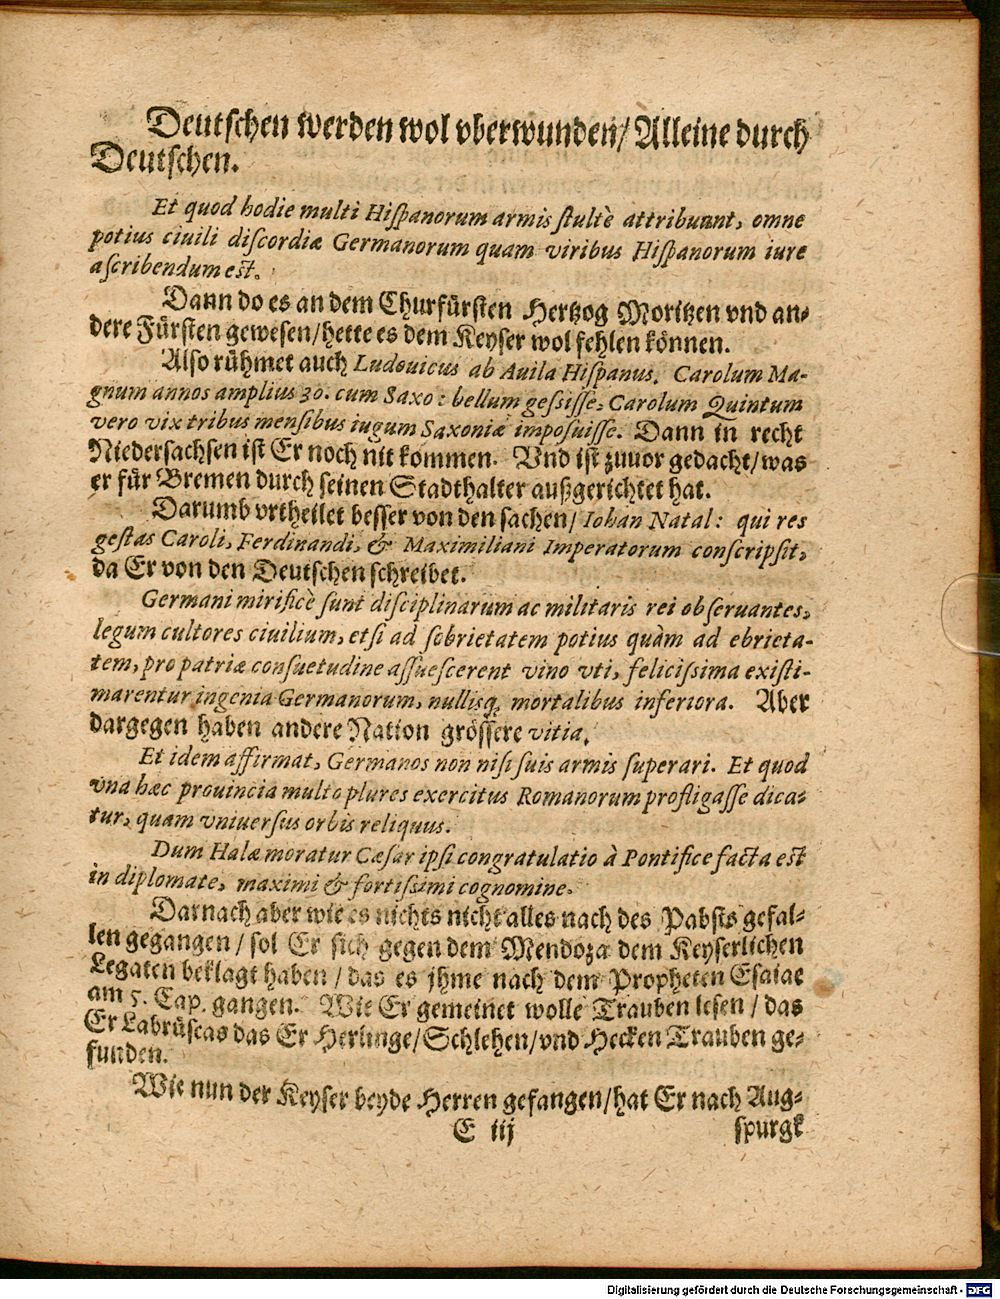 Deutschen werden wol vberwunden/ Alleine durch
Deutschen.
Et quod hodie multi Hiſpanorum armis ſtultè attribuunt, omne
potius ciuili diſcordiæ Germanorum quam viribus Hiſpanorum iure
aſcribendum eſt.
Dann do es an dem Churfürſten Hertzog Moritzen vnd an⸗
dere Fürſten geweſen/ hette es dem Keyſer wol fehlen können.
Alſo rühmet auch Ludouicus ab Auila Hiſpanus. Carolum Ma-
gnum annos amplius 30. cum Saxo: bellum geſsiſſe, Carolum Quintum
vero vix tribus menſibus iugum Saxoniæ impoſuiſſe. Dann in recht
Niederſachſen iſt Er noch nit kommen. Vnd iſt zuuor gedacht/ was
er für Bremen durch ſeinen Stadthalter außgerichtet hat.
Darumb vrtheilet beſſer von den ſachen/ Iohan Natal: qui res
geſtas Caroli, Ferdinandi, & Maximiliani Imperatorum conſcripſit,
da Er von den Deutſchen ſchreibet.
Germani mirificè ſunt diſciplinarum ac militaris rei obſeruantes,
legum cultores ciuilium, etſi ad ſobrietatem potius quàm ad ebrieta-
tem, pro patriæ conſuetudine aſſueſcerent vino vti, feliciſsima exiſti-
marentur ingenia Germanorum, nullisq́; mortalibus inferiora. Aber
dargegen haben andere Nation gröſſere vitia.
Et idem affirmat, Germanos non niſi ſuis armis ſuperari. Et quod
vna hæc prouincia multo plures exercitus Romanorum profligaſſe dica⸗
tur, quam vniuerſus orbis reliquus.
Dum Halæ moratur Cæſar ipſi congratulatio à Pontifice facta eſt
in diplomate, maximi & fortiſsimi cognomine.
Darnach aber wie es nichts nicht alles nach des Pabſts gefal⸗
len gegangen/ ſol Er ſich gegen dem Mendoza dem Keyſerlichen
Legaten beklagt haben/ das es jhme nach dem Propheten Eſaiae
am 5. Cap. gangen. Wie Er gemeinet wolle Trauben leſen/ das
Er Labrüſcas das Er Herlinge/ Schlehen/ vnd Hecken Trauben ge⸗
funden.
Wie nun der Keyſer beyde Herren gefangen/ hat Er nach Aug⸗
E iij ſpurgk
Digitalisierung gefördert durch die Deutsche Forschungsgemeinschaft - DFG